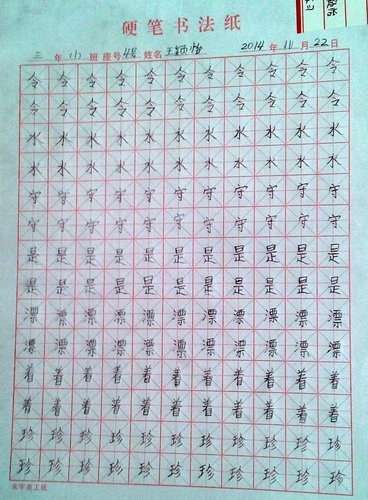 硬笔书法纸
三年(1)班座号4号姓名王颖怡 2014年11月22日
令令令令令令令令令令令
令令令令令令令令令令令
水水水水水水水水水水水
水水水水水水水水水水水
守守守守守守守守守守守
守守守守守守守守守守守
是是是是是是是是是是是
是是是是是是是是是是是
漂漂漂漂漂漂漂漂漂漂漂
漂漂漂漂漂漂漂漂漂漂漂
着着着着着着着着着着着
着着着着着着着着着着着
珍珍珍珍珍珍珍珍珍珍珍
珍珍珍珍珍珍珍珍珍珍珍
米字美工纸